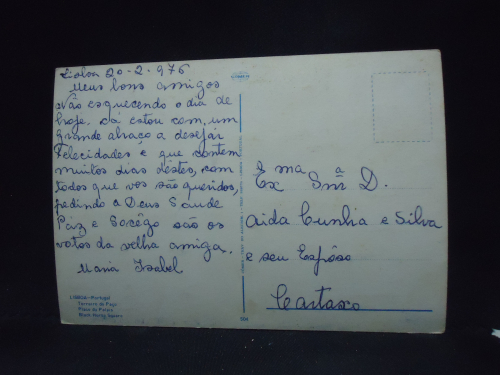 Lisboa 20-2-976
Meus bons amigos
Não esquecendo o dia de
hoje. Cá estou com, um
grande abraço a desejar
Felecidades e que contem
muitos dias destes, com
todos que vos são queridos,
pedindo a Deus Saude
Paz e Socêgo são os
votos da velha amiga.
Maria Isabel
LISBOA-Portugal
Terreiro do Paço
Place du Palais
Black Horse Square
Exma Snrª D.
Aida Cunha e Silva
e seu Espôso
Cartaxo